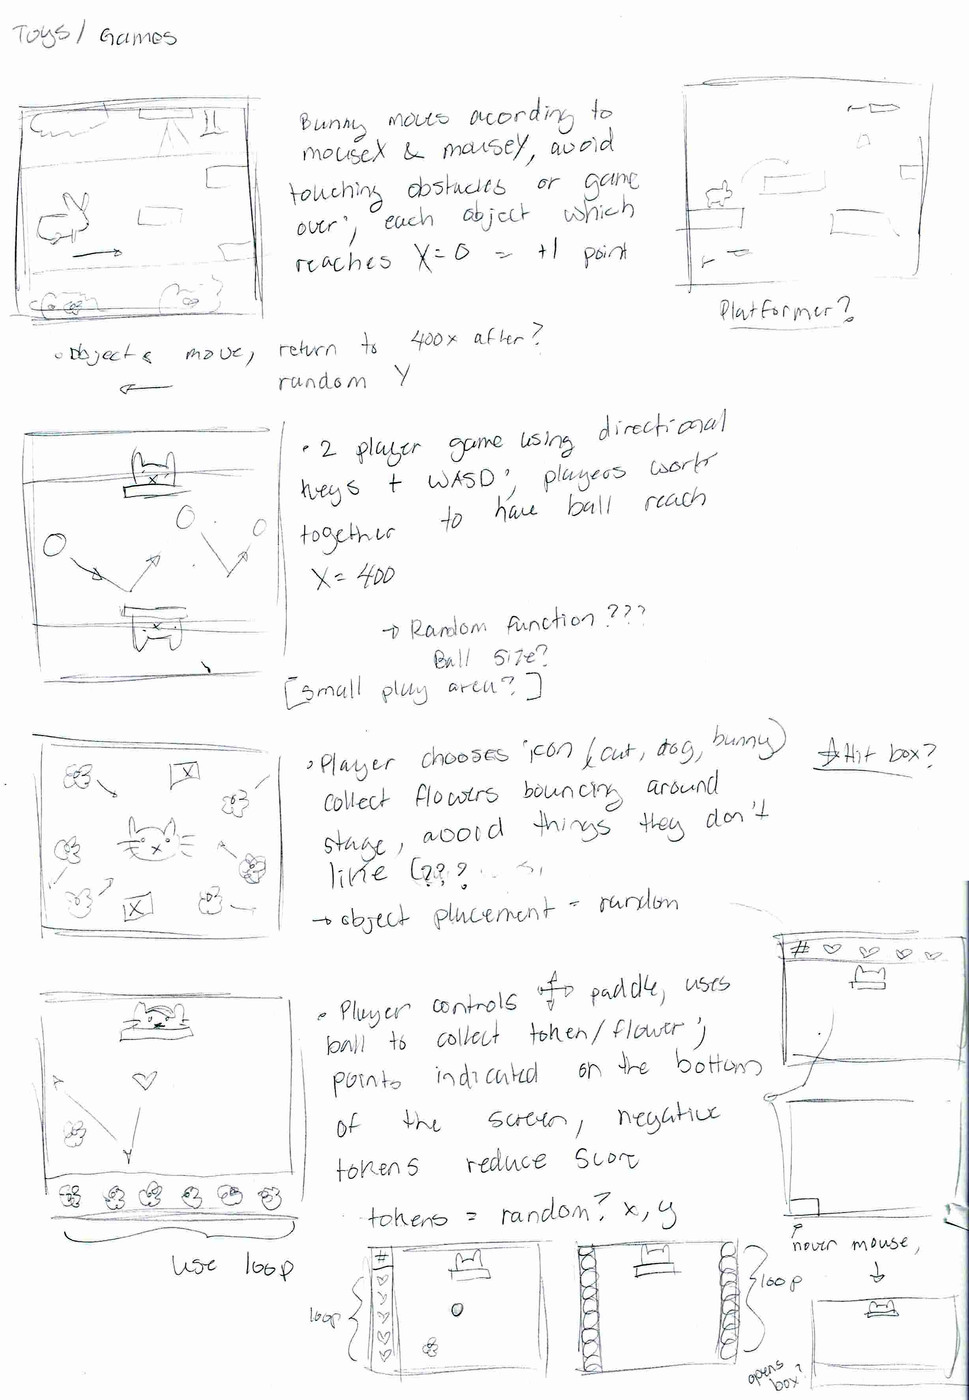 Toys / Games
Bunny moves acording to
mouseX & mouseY, avoid
touching obstacles or game
over; each object which
reaches X=0 = +1 point
Platformer?
objects move, return to 400x after?
random Y
• 2 player game using directional
keys + WASD; players work
together to have ball reach
X=400
→ Random function???
Ball size?
[small play area?]
• Player chooses icon (cat, dog, bunny)
collect flowers bouncing around
stage, avoid things they don't
like (???
→ object placement = random
Hit box?
• Player controls paddle, uses
ball to collect token/flower;
points indicated on the bottom
of the screen, negative
tokens reduce score
tokens = random? x, y
use loop
#
hover mouse,
#
loop
loop
opens
box?